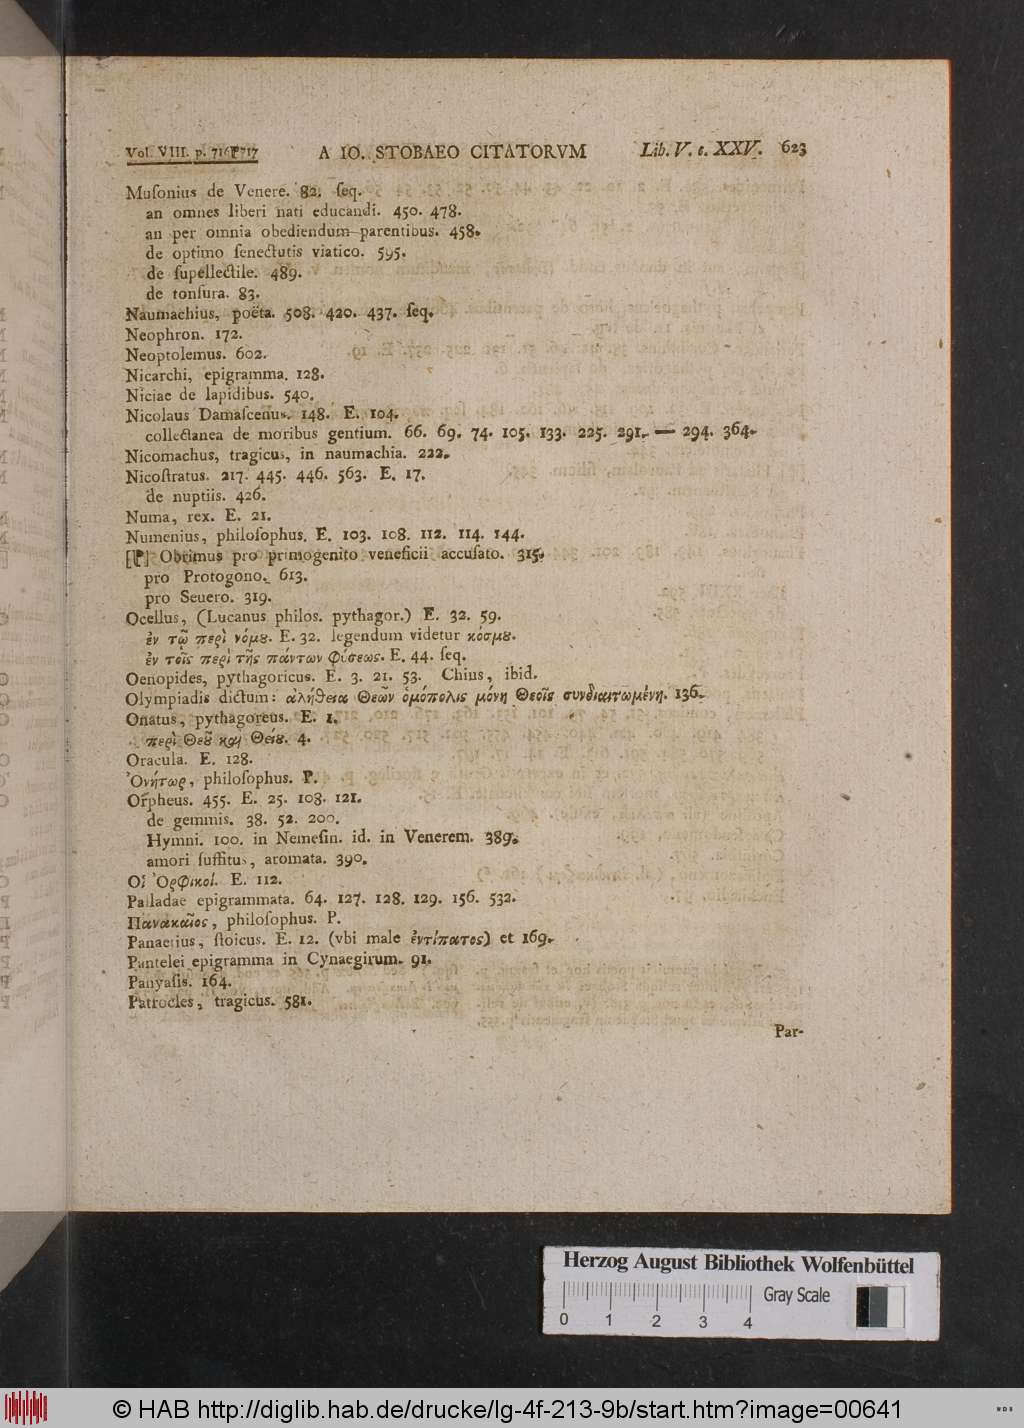 Vol. VIII. p. 716 P 717 A IO. STOBAEO CITATORVM Lib. V. c. XXV. 623
Muſonius de Venere. 82. ſeq.
an omnes liberi nati educandi. 450. 478.
an per omnia obediendum parentibus. 458.
de optimo ſenectutis viatico. 595.
de ſupellectile. 489.
de tonſura. 83.
Naumachius, poëta. 508. 420. 437. ſeq.
Neophron. 172.
Neoptolemus. 602.
Nicarchi, epigramma. 128.
Niciae de lapidibus. 540.
Nicolaus Damaſcenus. 148. E. 104.
collectanea de moribus gentium. 66. 69. 74. 105. 133. 225. 291. — 294. 364.
Nicomachus, tragicus, in naumachia. 222.
Nicoſtratus. 217. 445. 446. 563. E. 17.
de nuptiis. 426.
Numa, rex. E. 21.
Numenius, philoſophus. E. 103. 108. 112. 114. 144.
[P] Obrimus pro primogenito veneficii accuſato. 315.
pro Protogono. 613.
pro Seuero. 319.
Ocellus, (Lucanus philos. pythagor.) E. 32. 59.
ἐν τῷ περὶ νόμȣ. E. 32. legendum videtur κόσμȣ.
ἐν τοῖς περὶ τῆς πάντων φύσεως. E. 44. ſeq.
Oenopides, pythagoricus. E. 3. 21. 53. Chius, ibid.
Olympiadis dictum: ἀλήθεια Θεῶν ὁμόπολις μόνη Θεοῖς συνδιαιτωμένη. 136.
Onatus, pythagoreus. E. 1.
περὶ Θεȣ͂ καὶ Θείȣ. 4.
Oracula. E. 128.
Ὀνήτωρ, philoſophus. P.
Orpheus. 455. E. 25. 108. 121.
de gemmis. 38. 52. 200.
Hymni. 100. in Nemeſin. id. in Venerem. 389.
amori ſuffitus, aromata. 390.
Οἱ Ὀρφικοί. E. 112.
Palladae epigrammata. 64. 127. 128. 129. 156. 532.
Πανακαῖος, philoſophus. P.
Panaetius, ſtoicus. E. 12. (vbi male ἐντίπατος) et 169.
Pantelei epigramma in Cynaegirum. 91.
Panyaſis. 164.
Patrocles, tragicus. 581.
Par-
Herzog August Bibliothek Wolfenbüttel
Gray Scale
0 1 2 3 4
© HAB http://diglib.hab.de/drucke/lg-4f-213-9b/start.htm?image=00641